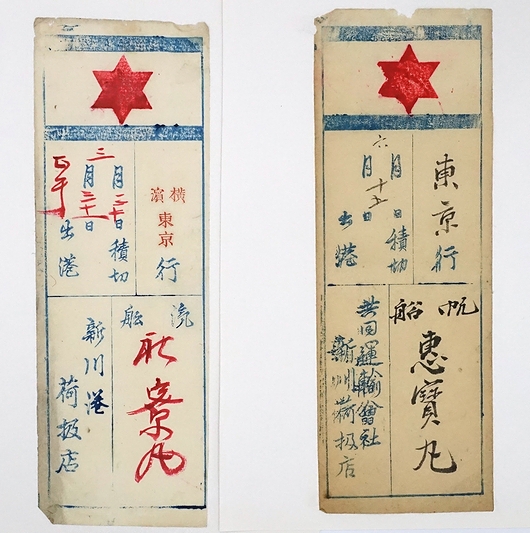 横濱
東京
行
三月三十日積切
月三十一日
正午
出港
汽船
丸
新川港
荷扱店
東京行
日積切
六月
月十五日
出港
帆船
惠寶丸
共同運輸會社
新川荷扱店